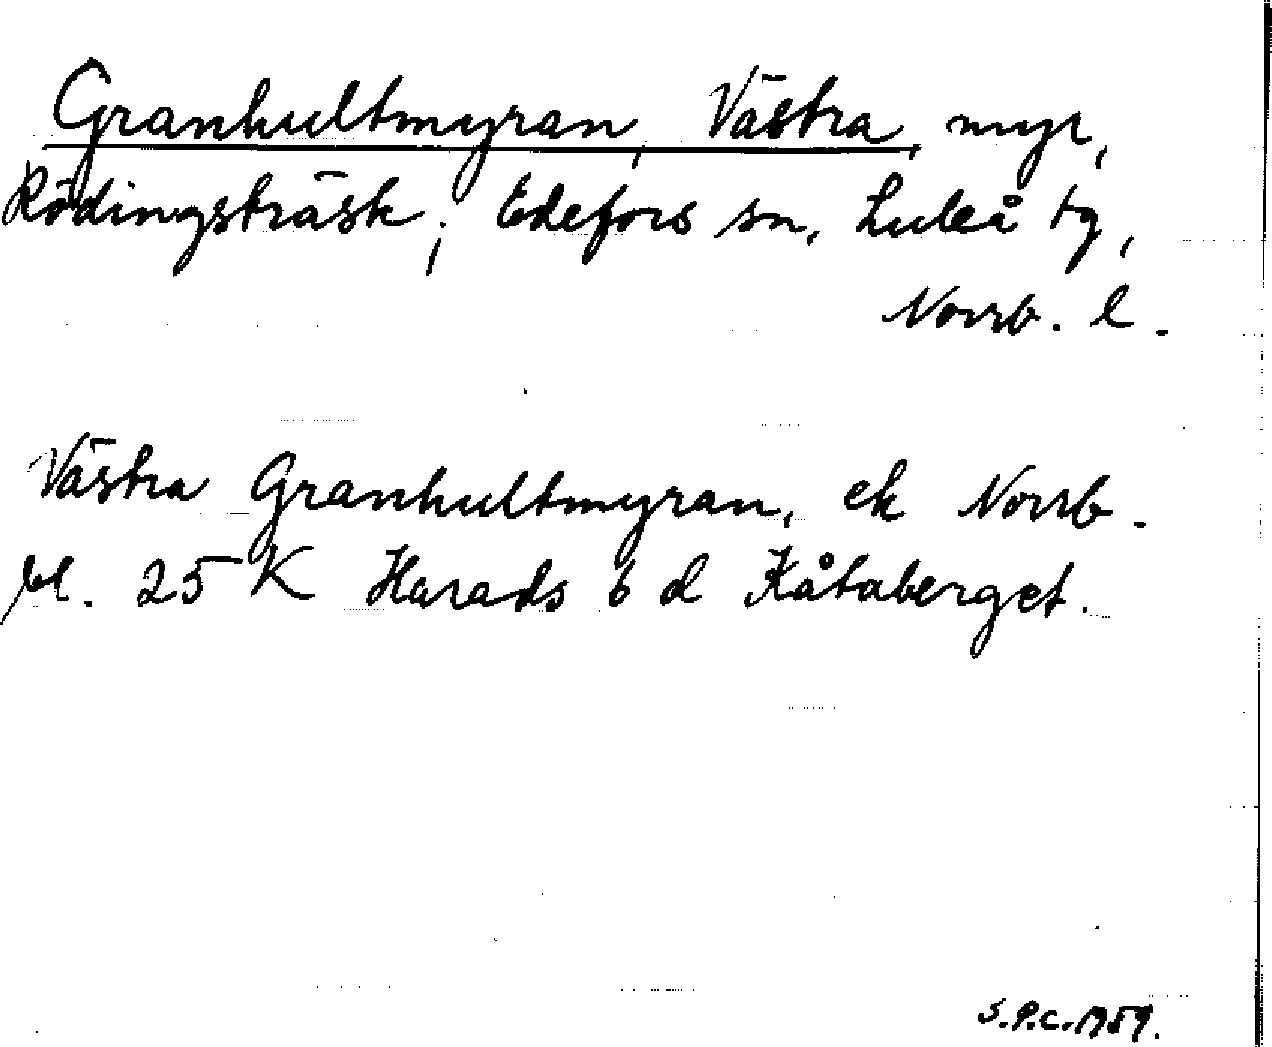 Granhultmyran, Västra, myr,
Rödingsträsk, Edefors sn, Luleå tg,
Norrb. l.
Västra Granhultmyran, ek Norrb.
bl. 25 K Harads 6 d Kåtaberget.
S.P.C. 1959.